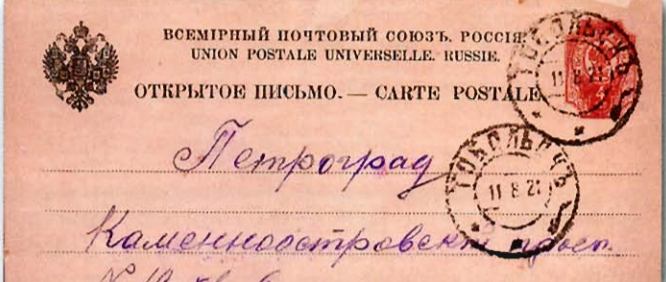 ВСЕМІРНЫЙ ПОЧТОВЫЙ СОЮЗЪ. РОССІЯ.
UNION POSTALE UNIVERSELLE. RUSSIE.
ОТКРЫТОЕ ПИСЬМО. — CARTE POSTALE
ТОБОЛЬСКЪ
11 8 21
Петроград
ТОБОЛЬСКЪ
11 8 21
Каменноостровский просп.